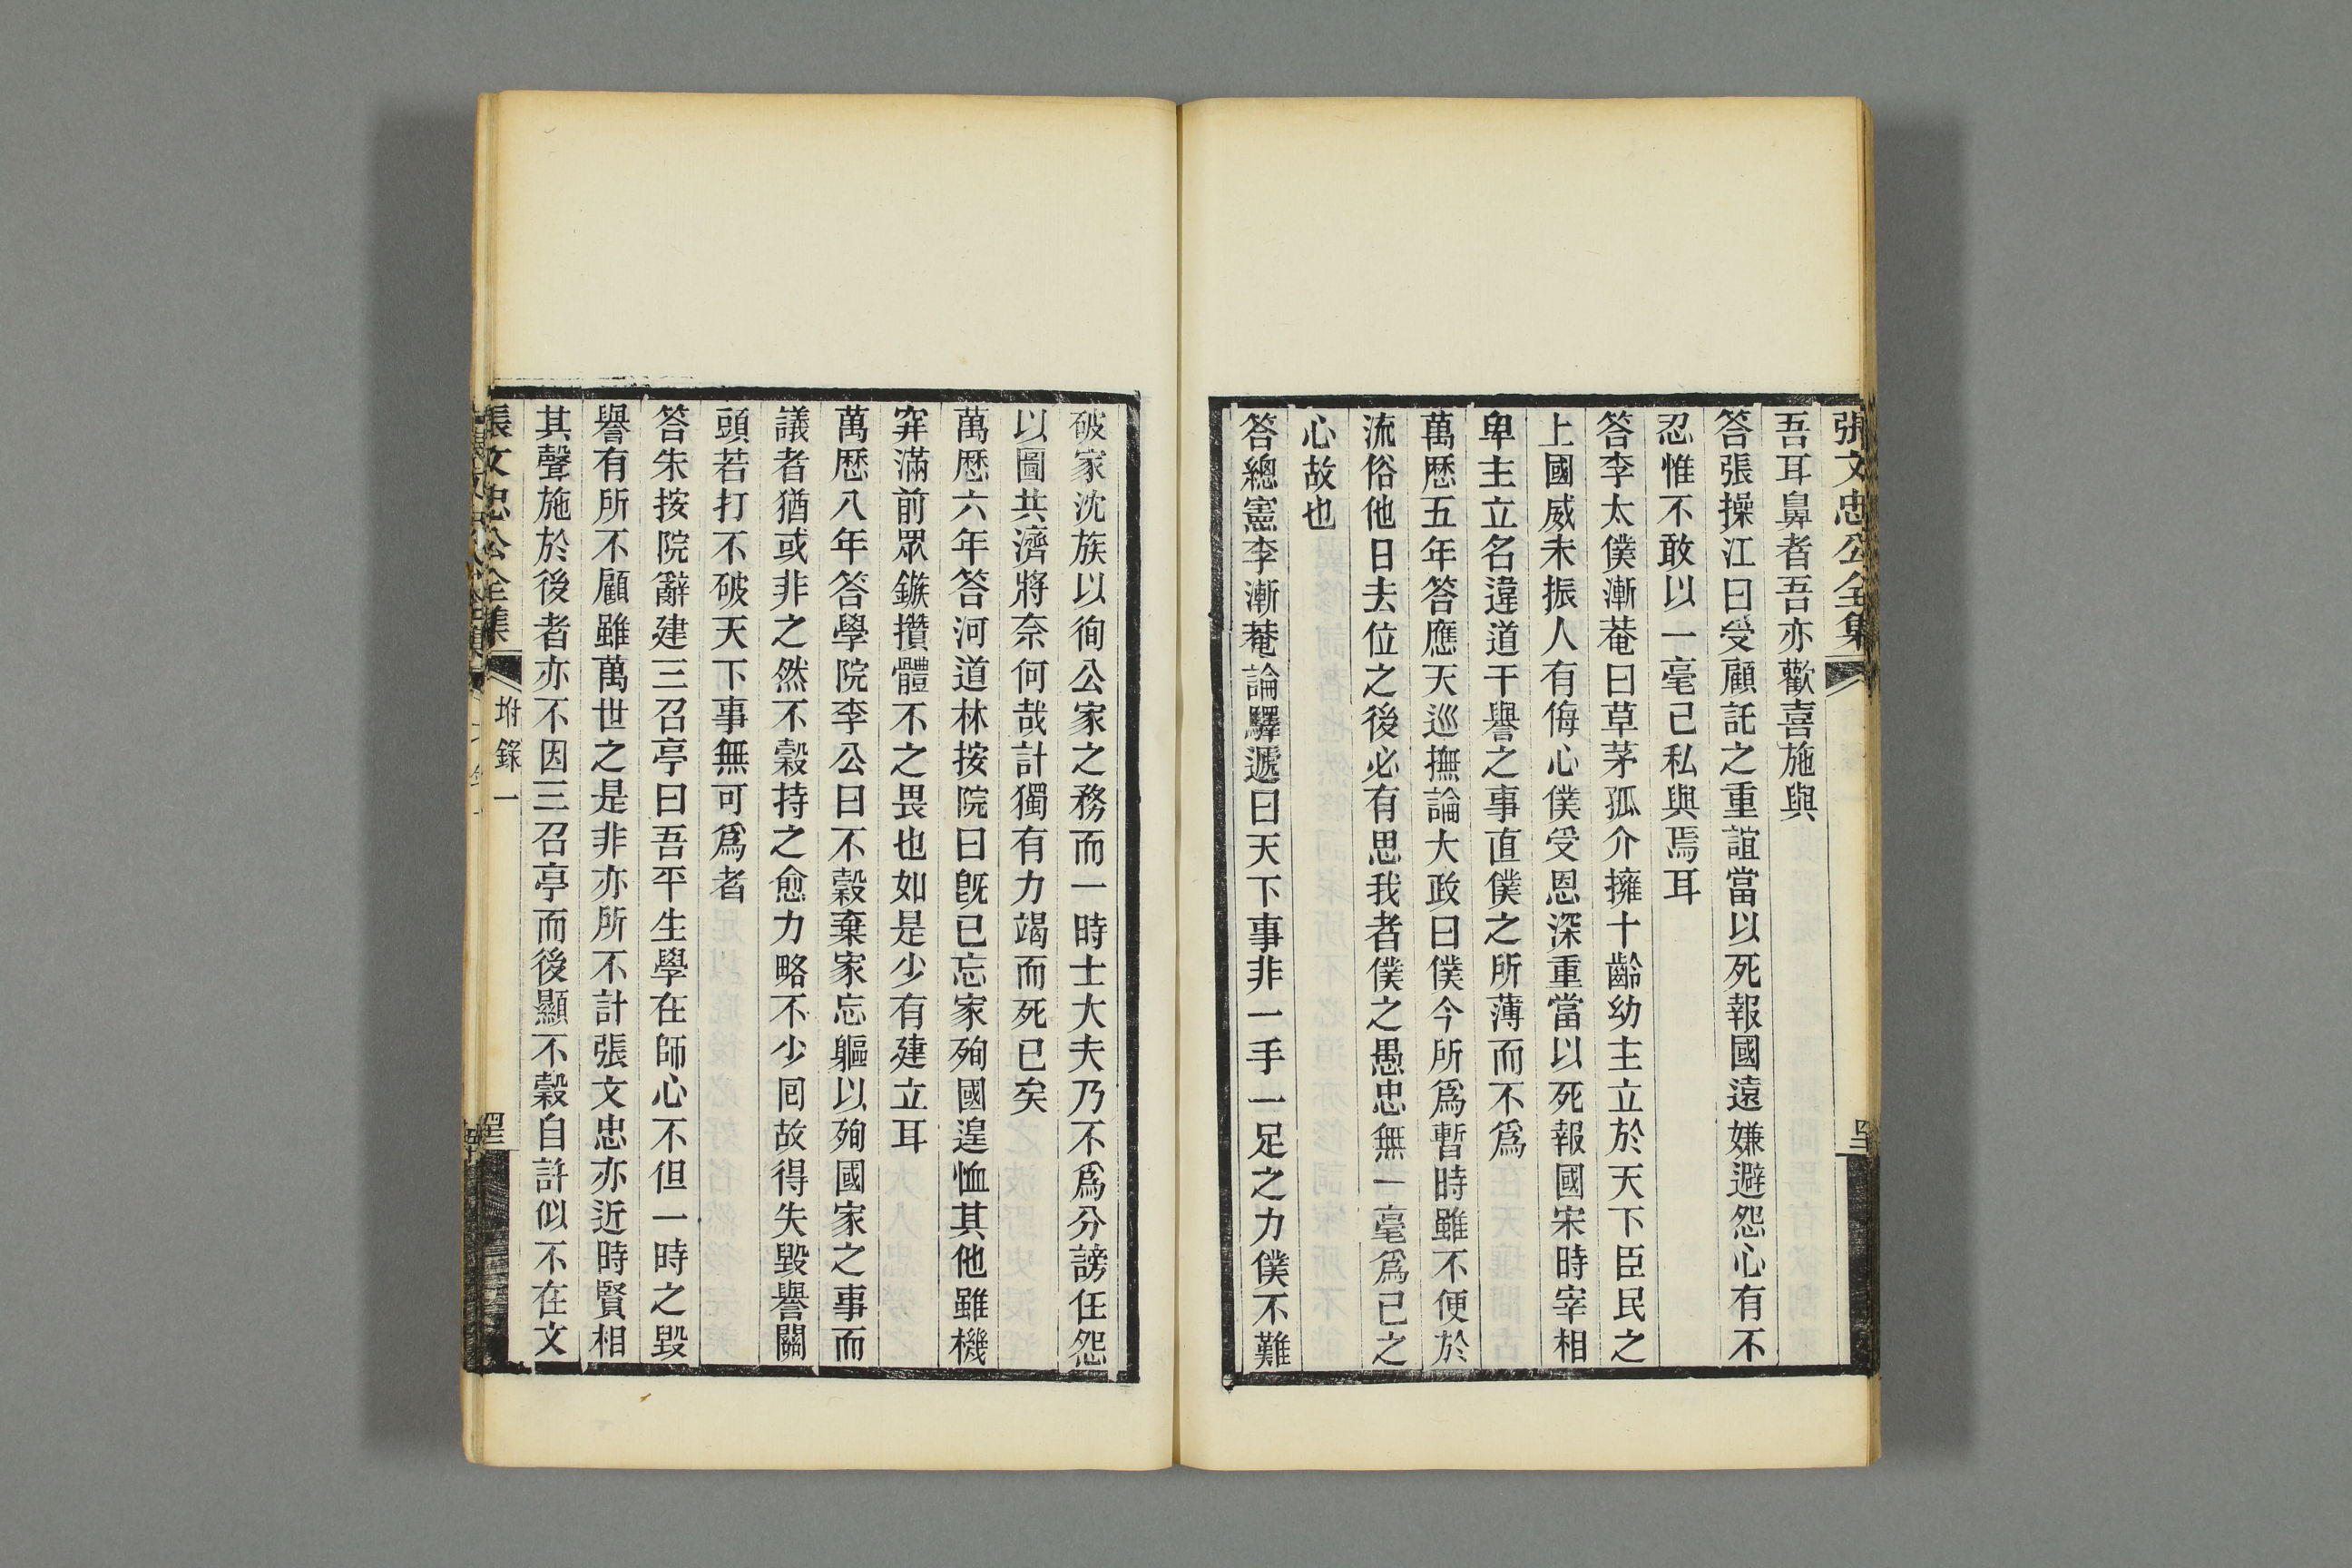 張文忠公全集
吾耳鼻者吾亦歡喜施與
答張操江曰受顧託之重誼當以死報國遠嫌避怨心有不
忍惟不敢以一毫己私與焉耳
答李太僕漸菴曰草茅孤介擁十齡幼主立於天下臣民之
上國威未振人有侮心僕受恩深重當以死報國宋時宰相
卑主立名違道干譽之事直僕之所薄而不為
萬歷五年答應天巡撫論大政曰僕今所為暫時雖不便於
流俗他日去位之後必有思我者僕之愚忠無一毫為已之
心故也
答總憲李漸菴論驛遞曰天下事非一手一足之力僕不難
破家沈族以徇公家之務而一時士大夫乃不為分謗任怨
以圖共濟將奈何哉計獨有力竭而死已矣
萬歷六年答河道林按院曰旣已忘家殉國遑恤其他雖機
穽滿前眾鏃攢體不之畏也如是少有建立耳
萬歷八年答學院李公曰不穀棄家忘軀以殉國家之事而
議者猶或非之然不穀持之愈力略不少回故得失毀譽關
頭若打不破天下事無可為者
答朱按院辭建三召亭曰吾平生學在師心不但一時之毀
譽有所不顧雖萬世之是非亦所不計張文忠亦近時賢相
其聲施於後者亦不因三召亭而後顯不穀自許似不在文
張文忠公全集
坿錄一